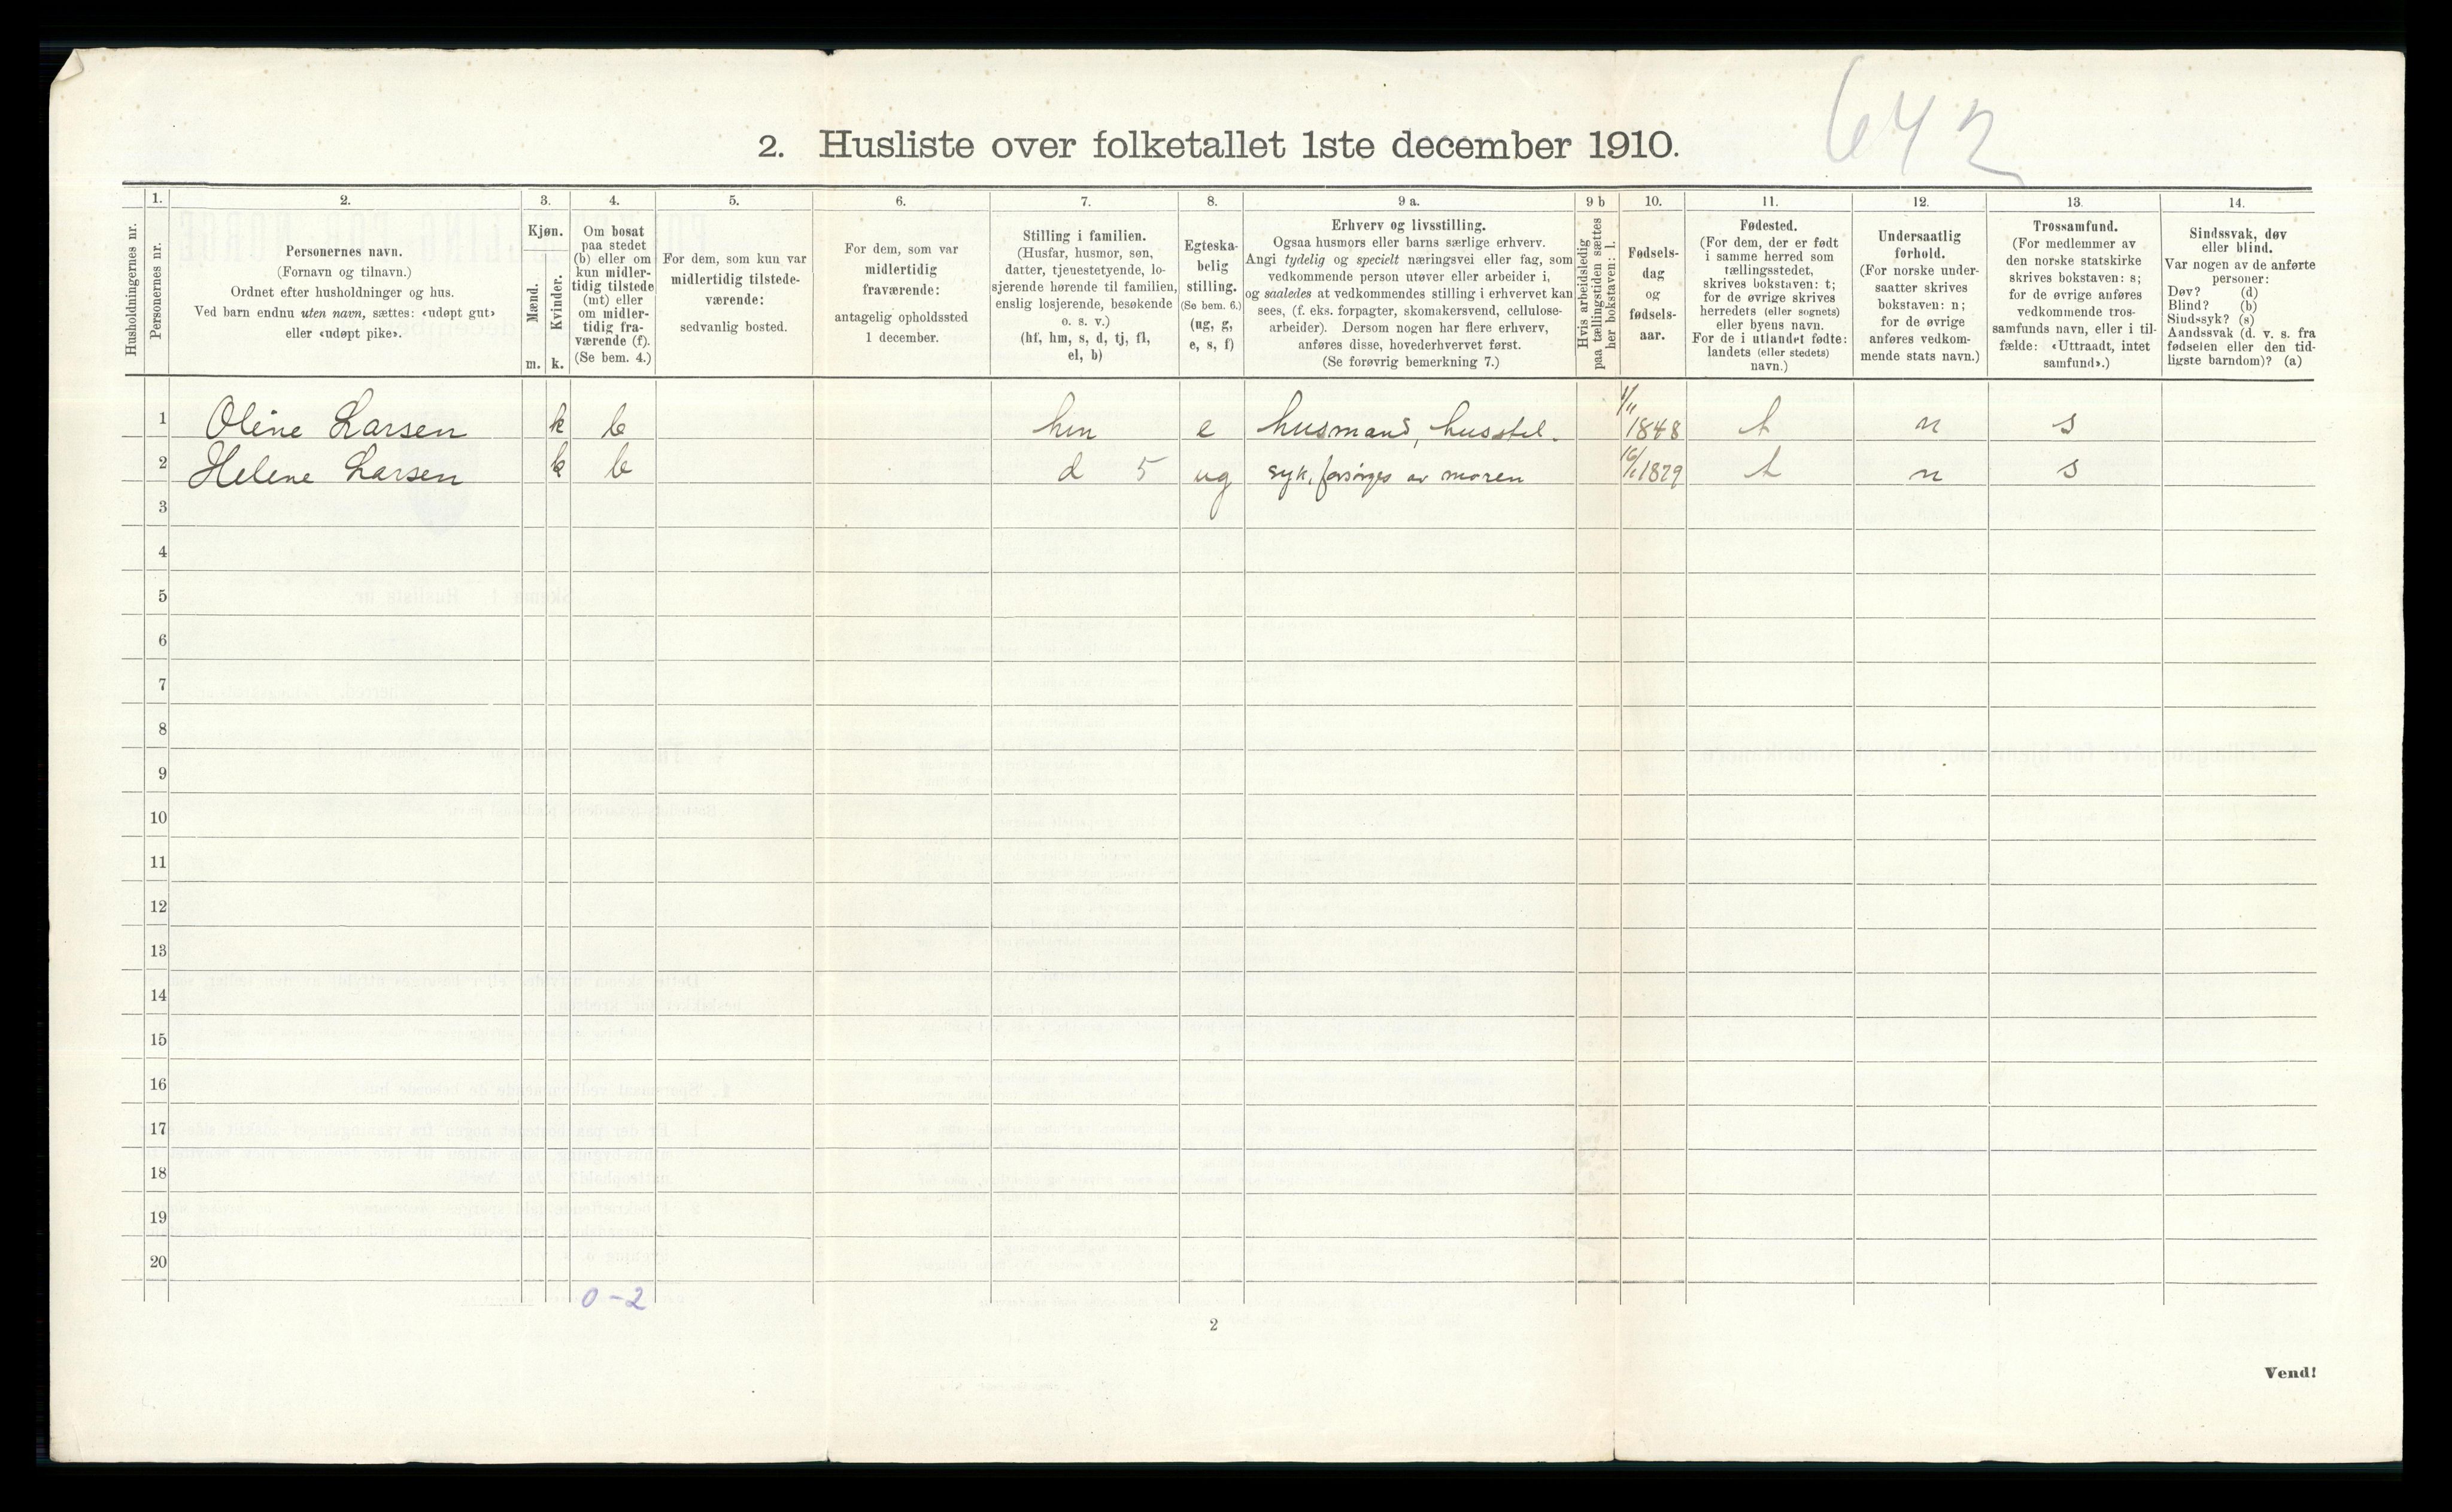 642
2. Husliste over folketallet 1ste december 1910.
Husholdningernes nr.
1.
Personernes nr.
2.
Personernes navn.
(Fornavn og tilnavn.)
Ordnet efter husholdninger og hus.
Ved barn endnu uten navn, sættes: «udøpt gut»
eller «udøpt pike».
3.
Kjøn.
Mænd.
Kvinder.
m.
k.
4.
Om bosat
paa stedet
(b) eller om
kun midler-
tidig tilstede
(mt) eller
om midler-
tidig fra-
værende (f).
(Se bem. 4.)
5.
For dem, som kun var
midlertidig tilstede-
værende:
sedvanlig bosted.
6.
For dem, som var
midlertidig
fraværende:
antagelig opholdssted
1 december.
7.
Stilling i familien.
(Husfar, husmor, søn,
datter, tjenestetyende, lo-
sjerende hørende til familien,
enslig losjerende, besøkende
o. s. v.)
(hf, hm, s, d, tj, fl,
el, b)
8.
Egteska-
belig
stilling.
(Se bem. 6.)
(ug, g,
e, s, f)
9 a.
Erhverv og livsstilling.
Ogsaa husmors eller barns særlige erhverv.
Angi tydelig og specielt næringsvei eller fag, som
vedkommende person utøver eller arbeider i,
og saaledes at vedkommendes stilling i erhvervet kan
sees, (f. eks. forpagter, skomakersvend, cellulose-
arbeider). Dersom nogen har flere erhverv,
anføres disse, hovederhvervet først.
(Se forøvrig bemerkning 7.)
9 b
Hvis arbeidsledig
paa tællingstiden sættes
her bokstaven: l.
10.
Fødsels-
dag
og
fødsels-
aar.
11.
Fødested.
(For dem, der er født
i samme herred som
tællingsstedet,
skrives bokstaven: t;
for de øvrige skrives
herredets (eller sognets)
eller byens navn.
For de i utlandet fødte:
landets (eller stedets)
navn.)
12.
Undersaatlig
forhold.
(For norske under-
saatter skrives
bokstaven: n;
for de øvrige
anføres vedkom-
mende stats navn.)
13.
Trossamfund.
(For medlemmer av
den norske statskirke
skrives bokstaven: s;
for de øvrige anføres
vedkommende tros-
samfunds navn, eller i til-
fælde: «Uttraadt, intet
samfund».)
14.
Sindssvak, døv
eller blind.
Var nogen av de anførte
personer:
Døv? (d)
Blind? (b)
Sindssyk? (s)
Aandssvak (d. v. s. fra
fødselen eller den tid-
ligste barndom)? (a)
1 Oline Larsen k b hm e husmand, husstel. 1/11 1848 t n s
2 Helene Larsen k b d 5 ug syk, forsørges av moren 16/1 1879 t n s
3
4
5
6
7
8
9
10
11
12
13
14
15
16
17
18
19
20
0 - 2
2
Vend!